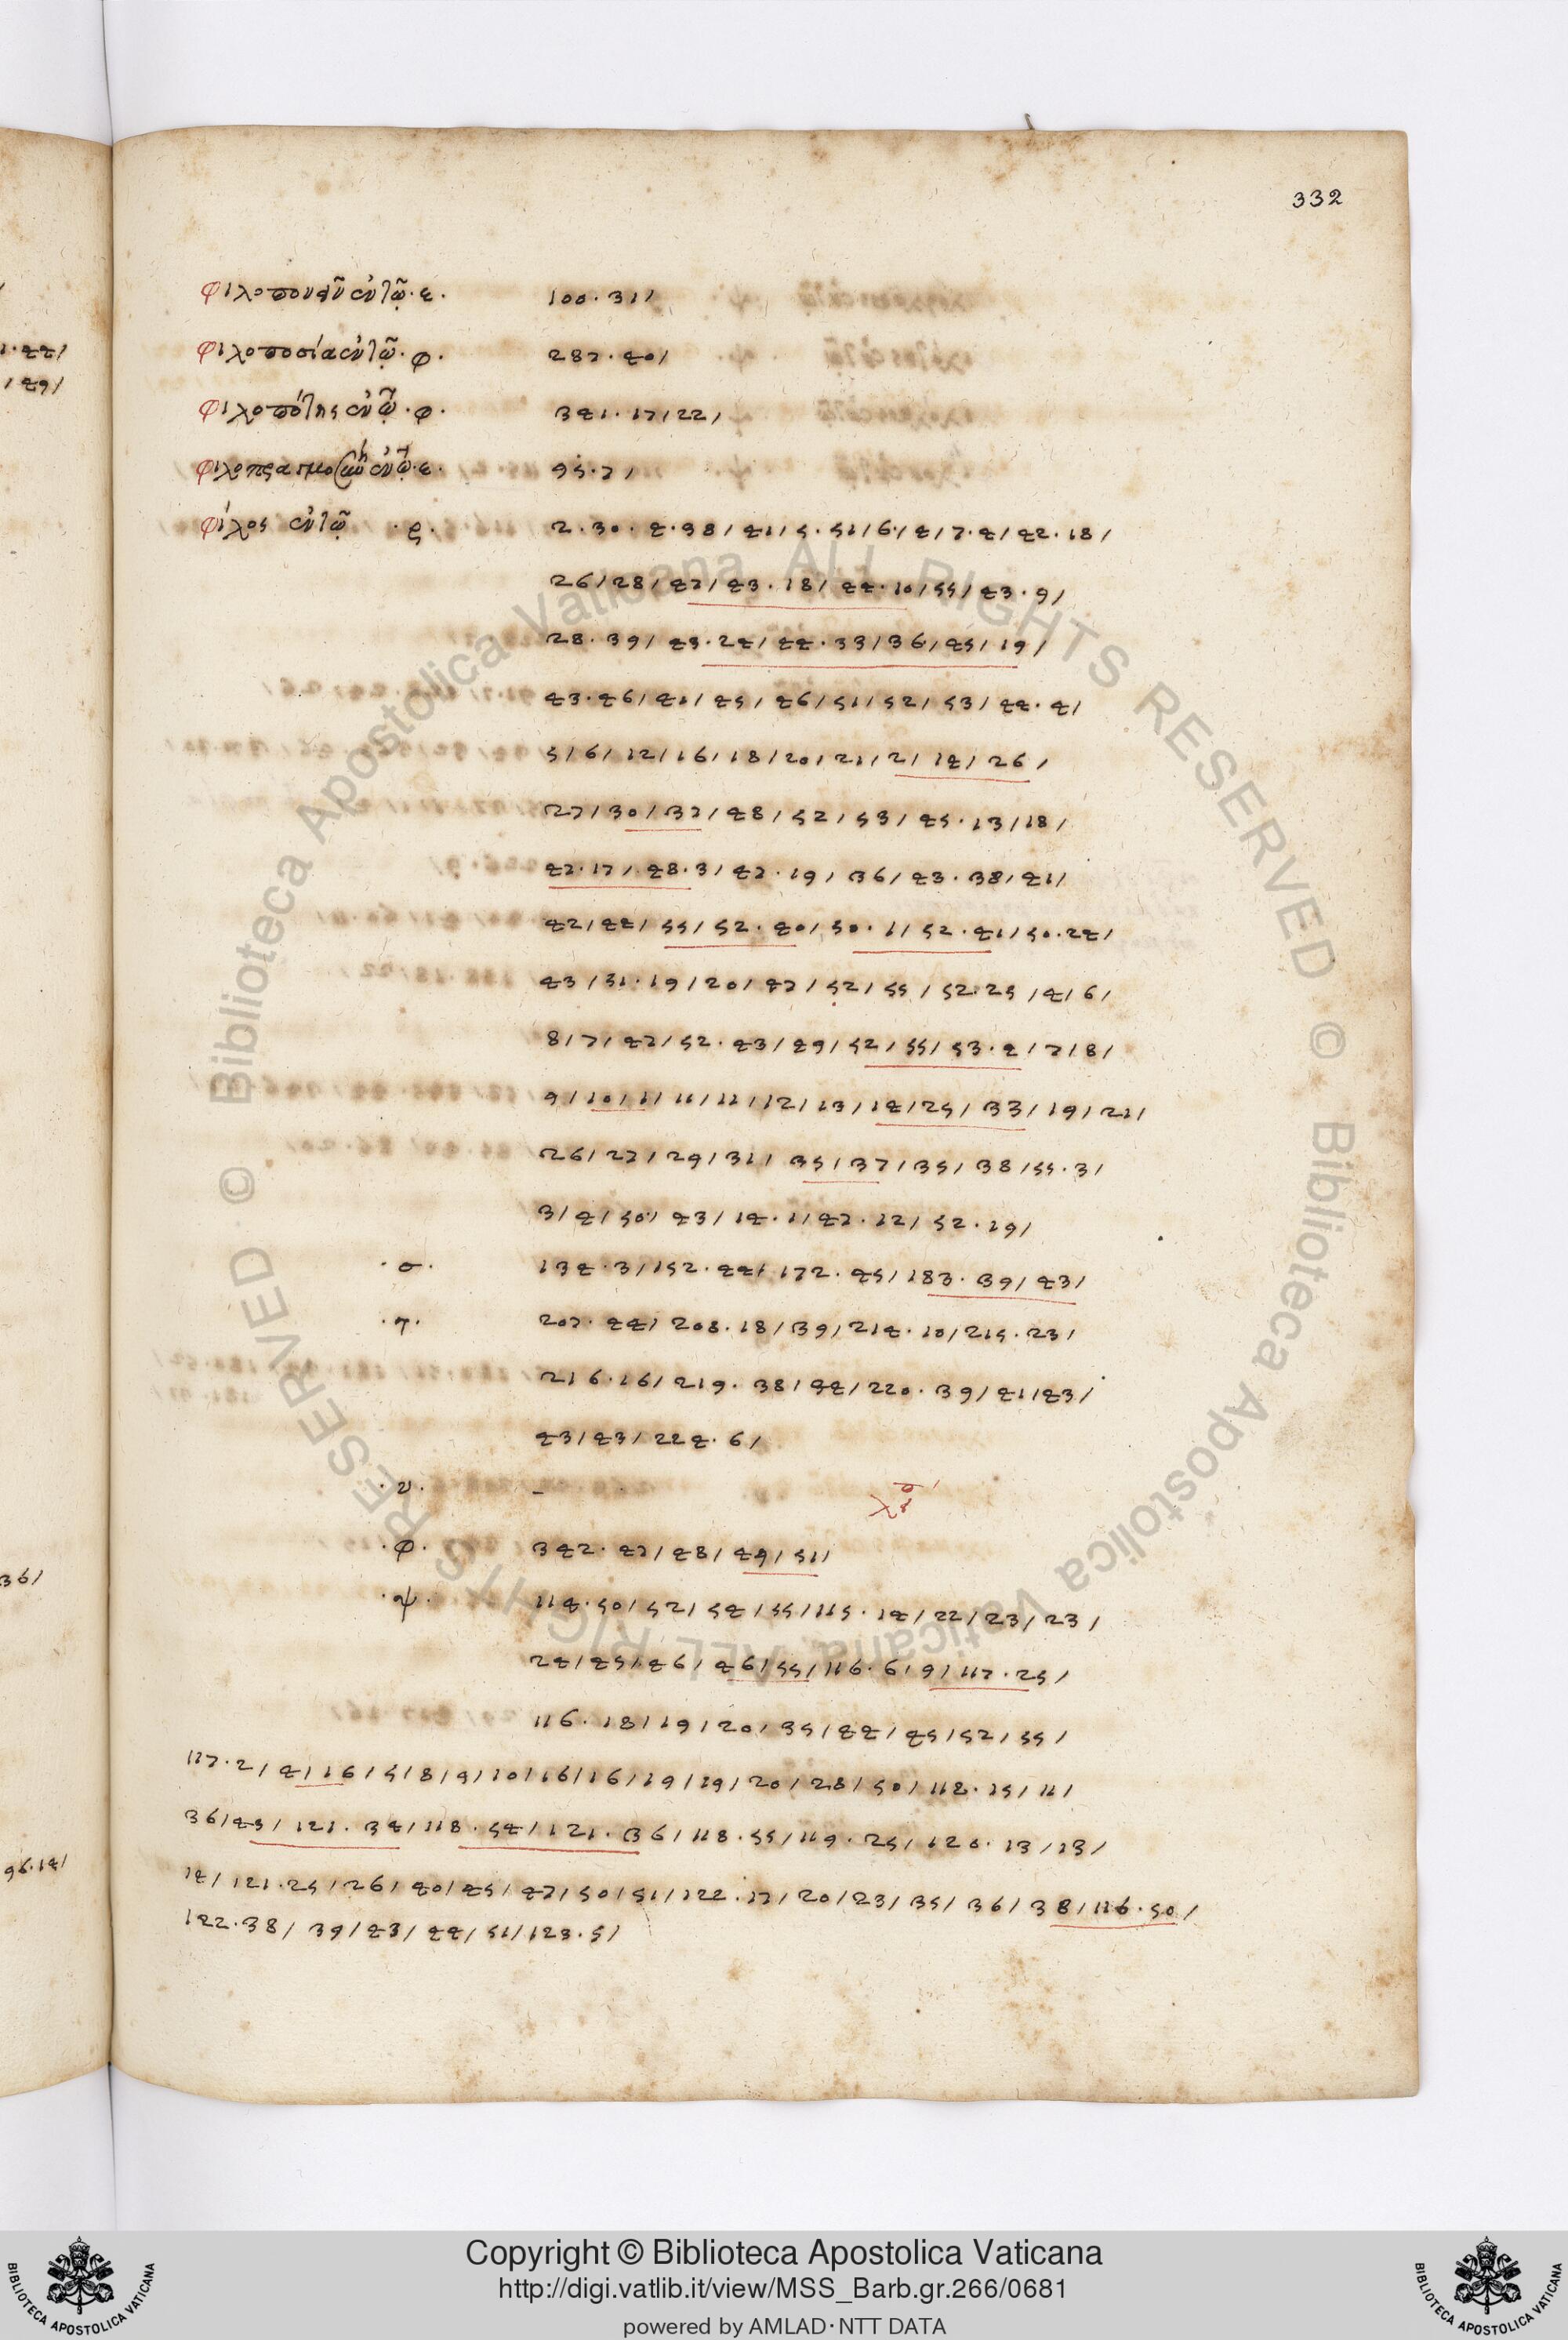 332
φιλοπονεῖν ἐν τῷ · ε · 100 · 31 /
φιλοποσία ἐν τῷ · φ · 287 · 40 /
φιλοπότης ἐν τῷ · φ · 341 · 17 / 22 /
ἐν τῷ · ε · 95 · 7 /
φίλος ἐν τῷ · ρ · 2 · 30 · 4 · 38 / 41 / 5 · 51 / 6 / 4 / 7 · 4 / 42 · 18 /
26 / 28 / 47 / 43 · 18 / 44 · 10 / 55 / 43 · 9 /
28 · 39 / 43 · 24 / 44 · 33 / 36 / 45 / 19 /
43 · 46 / 41 / 45 / 46 / 51 / 52 / 53 / 44 · 4 /
5 / 6 / 12 / 16 / 18 / 20 / 21 / 2 / 14 / 26 /
27 / 30 / 37 / 48 / 52 / 53 / 45 · 13 / 18 /
47 · 17 / 48 · 3 / 47 · 19 / 36 / 43 · 38 / 41 /
42 / 44 / 55 / 52 · 40 / 50 · 1 / 52 · 41 / 50 · 24 /
43 / 51 · 19 / 20 / 47 / 52 / 55 / 52 · 25 / 4 / 6 /
8 / 7 / 47 / 52 · 43 / 49 / 52 / 55 / 53 · 2 / 7 / 8 /
9 / 10 / 1 / 11 / 11 / 12 / 13 / 14 / 25 / 33 / 19 / 21 /
26 / 27 / 29 / 31 / 35 / 37 / 35 / 38 / 55 · 3 /
3 / 4 / 50 / 43 / 14 · 1 / 47 · 12 / 52 · 19 /
· σ · 134 · 3 / 152 · 44 / 172 · 45 / 183 · 39 / 43 /
· τ · 207 · 44 / 208 · 18 / 39 / 214 · 10 / 215 · 23 /
216 · 16 / 219 · 38 / 44 / 220 · 39 / 41 / 43 /
43 / 43 / 224 · 6 /
· υ · –
· φ · 342 · 47 / 48 / 49 / 51 /
· ψ · 114 · 50 / 52 / 54 / 55 / 115 · 14 / 22 / 23 / 23 /
24 / 45 / 46 / 46 / 55 / 116 · 6 / 9 / 117 · 25 /
116 · 18 / 19 / 20 / 35 / 44 / 45 / 52 / 55 /
117 · 2 / 4 / 16 / 5 / 8 / 9 / 10 / 16 / 16 / 19 / 19 / 20 / 28 / 50 / 118 · 15 / 11 /
36 / 43 / 121 · 34 / 118 · 54 / 121 · 36 / 118 · 55 / 119 · 25 / 120 · 13 / 13 /
14 / 121 · 25 / 26 / 40 / 45 / 47 / 50 / 51 / 122 · 17 / 20 / 23 / 35 / 36 / 38 / 116 · 50 /
122 · 38 / 39 / 43 / 44 / 51 / 123 · 5 /
Copyright © Biblioteca Apostolica Vaticana
http://digi.vatlib.it/view/MSS_Barb.gr.266/0681
powered by AMLAD·NTT DATA